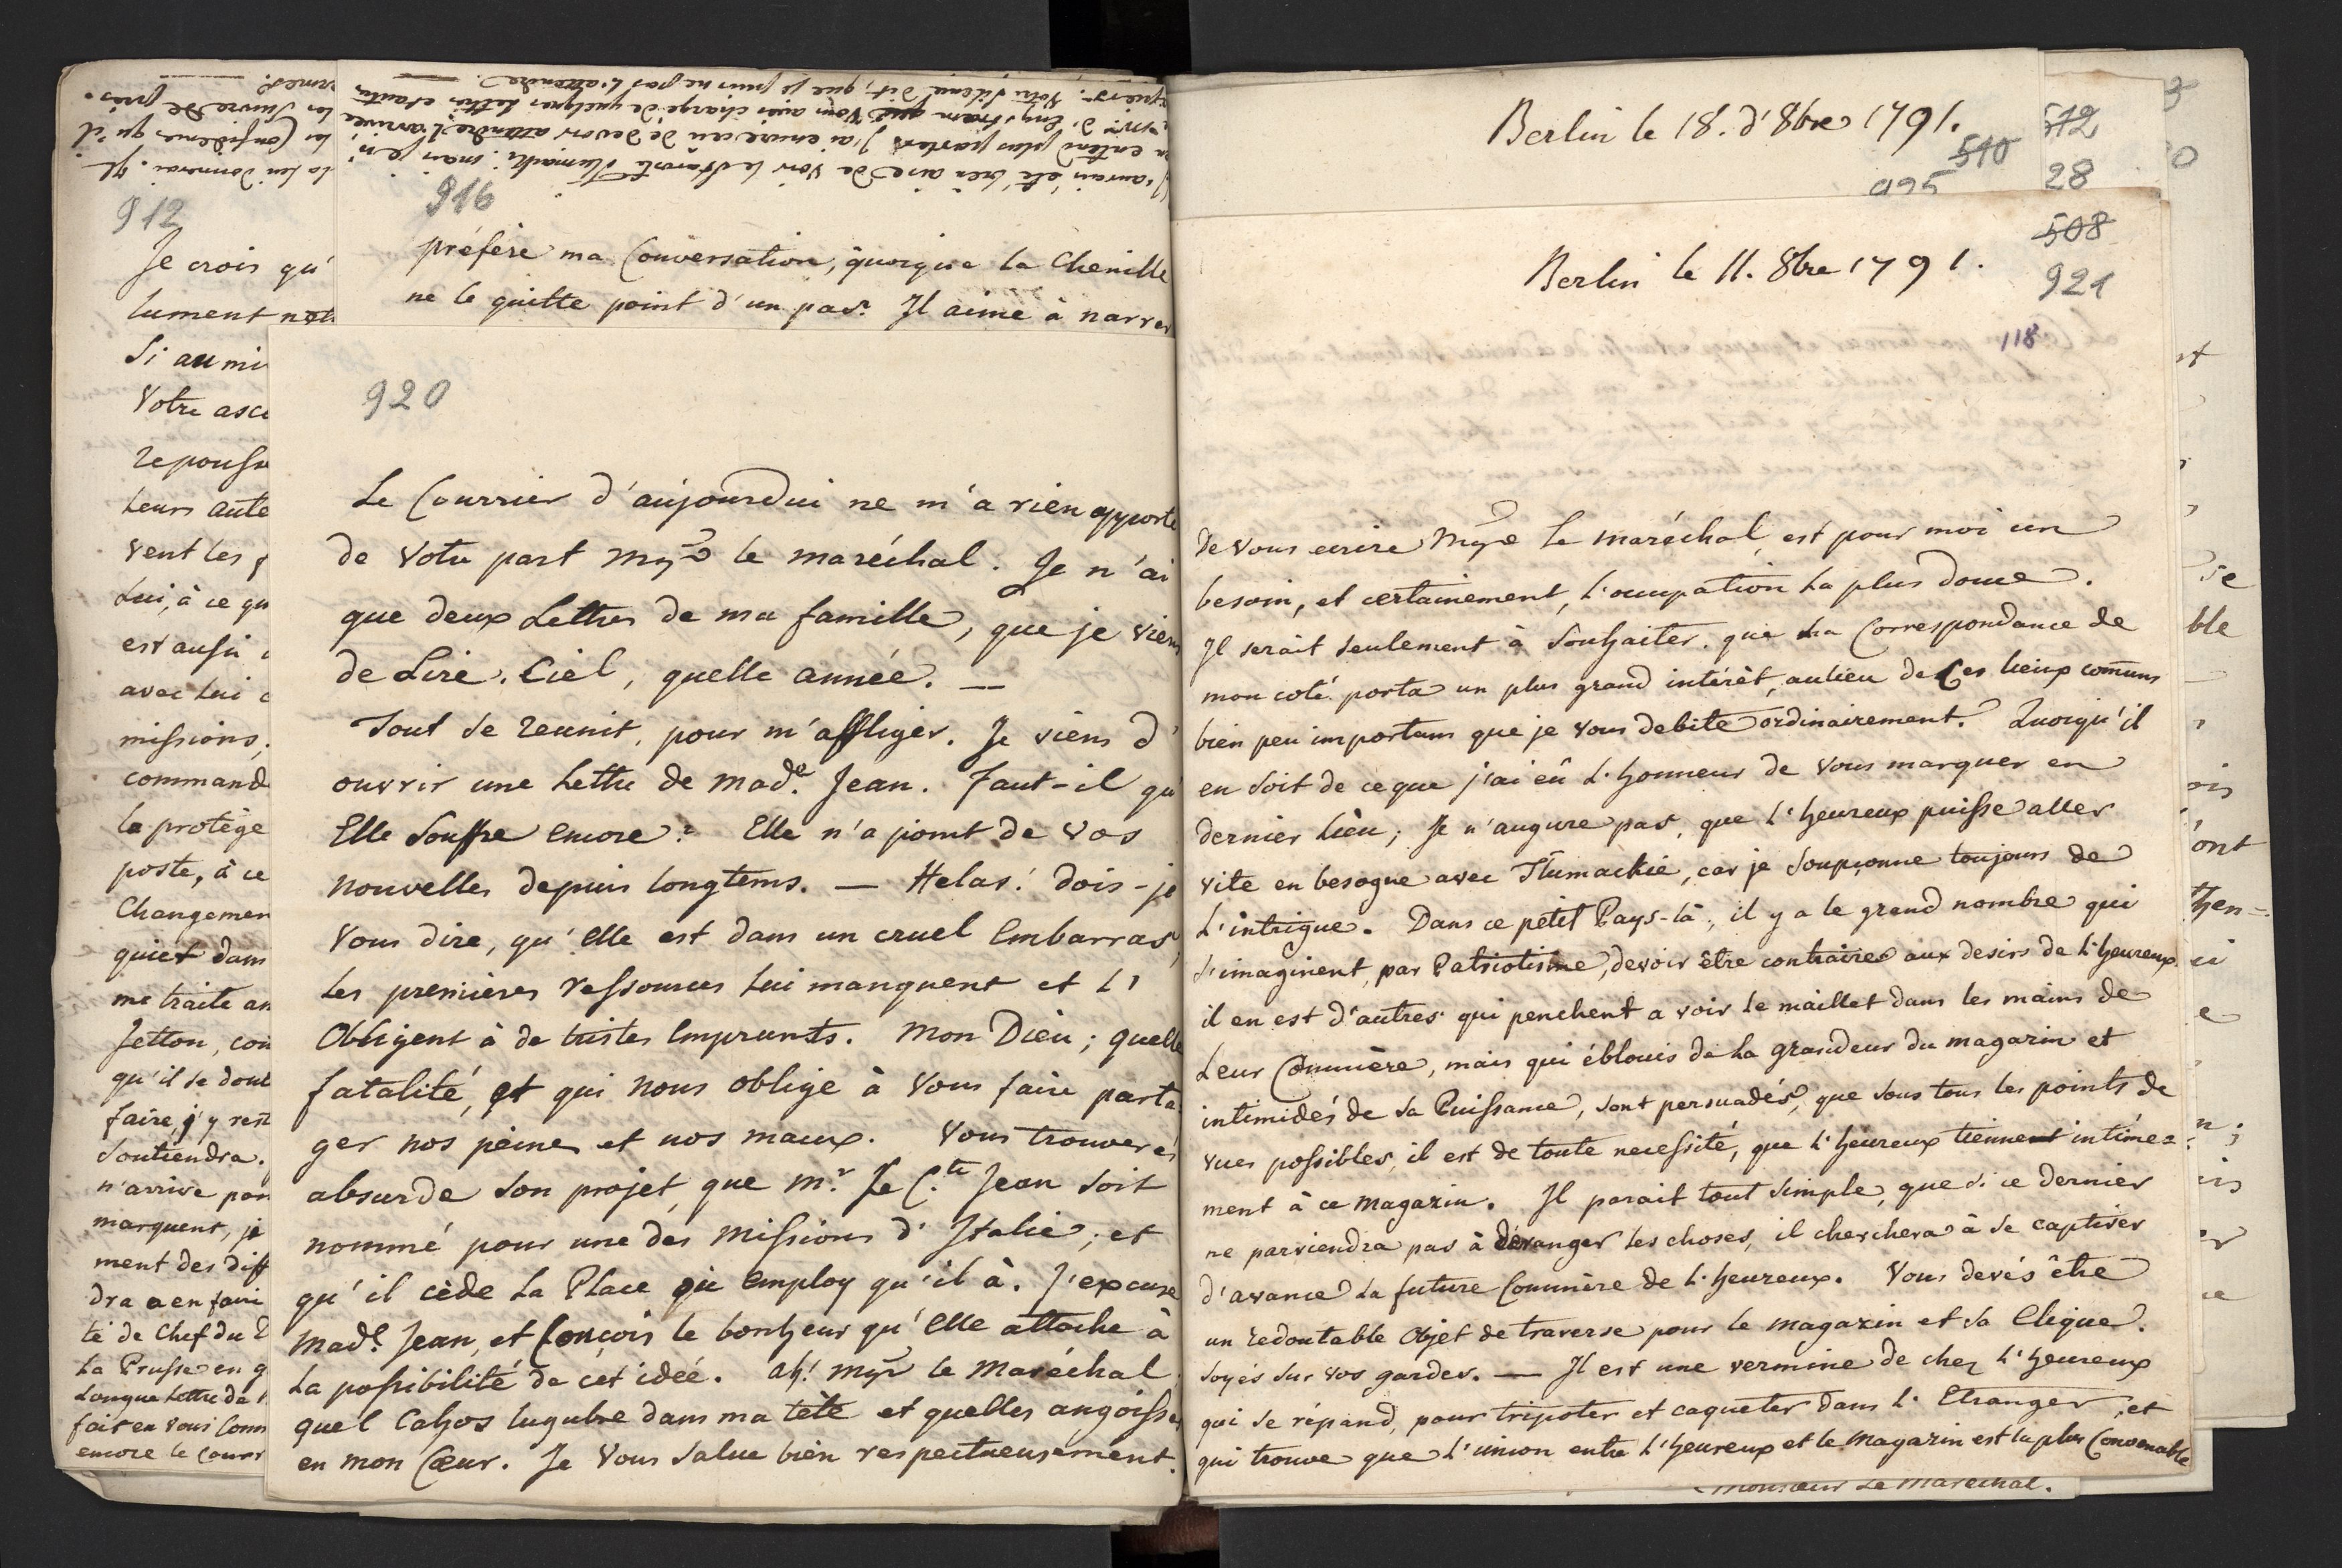 912
Je crois qu'
lument
Si au mi
Votre asce
repousse
Leurs aute
vent les
Lui, à ce qu
est aussi
avec lui
missions,
command
le protège
poste, à ce
Changemen
quiét dans
me traite
Jetton, con
qu'il se dout
faire, j'y rest
Soutiendra.
n'arrive pas
marquent, je
ment des diff
dra a en faire
té de Chef du
La Prusse en
Longue Lettre de
fait en vous
encore le Cour
J'aurais été très aise de voir le Staroste Tlumaski: mais je n'
en entend plus parler. J'ai encore cru de devoir attendre l'arrivée
de Mr. d'Engstrom que Vous avier chargé de quelques Lettres et autres
Votre Silence dit, que je puis ne pas l'attendre.
916
préfère ma Conversation, quoique la Chenille
ne le quitte point d'un pas. Il aime à narrer
920
Le Courrier d'aujourdui ne m'a rien apporté
de Votre part Mgr le maréchal. Je n'ai
que deux Lettres de ma famille, que je viens
de Lire. Ciel, quelle année. —
Tout se reunit, pour m'affliger. Je viens d'
ouvrir une Lettre de Made. Jean. Faut-il qu'
Elle Souffre encore? Elle n'a point de vos
nouvelles depuis longtems. — Helas! dois-je
Vous dire, qu'elle est dans un cruel Embarras,
Les premières ressources Lui manquent et L'
Obligent à de tristes Emprunts. Mon Dieu; quelle
fatalité, et qui nous oblige à Vous faire parta
ger nos peines et nos maux. Vous trouverés
absurde Son projet, que Mr. Le Cte. Jean soit
nommé pour une des Missions d'Italie; et
qu'il cède La Place qu Employ qu'il à. J'excuse
Made. Jean, et Conçois le bonheur qu'Elle attache à
La possibilité de cet idée. Ah! Mgr le Maréchal
quel Cahos lugubre dans ma tête et quelles angoisses
en mon Cœur. Je Vous Salue bien respectueusement.
Berlin le 18. d'8bre 1791.
510
512
28
Berlin le 11. 8bre 1791.
508
921
118
De Vous ecrire Mgr Le maréchal, est pour moi un
besoin, et certainement, l'occupation la plus douce.
Il serait Seulement à Souhaiter, que La Correspondance de
mon coté porta un plus grand intérêt, aulieu de Ces lieux comuns
bien peu importans que je Vous debite ordinairement. Quoiqu'il
en Soit de ce que j'ai eû l'honneur de Vous marquer en
dernier Lieu; Je n'augure pas, que l'heureux puisse aller
vite en besogne avec Tlumackie, car je Soupçonne toujours de
L'intrigue. Dans ce petit Pays-là, il y a le grand nombre qui
S'imaginent, par Patriotisme, devoir être contraires aux desirs de l'heureux.
il en est d'autres qui penchent a voir le maillet dans les mains de
Leur Commère, mais qui éblouis de La grandeur du magazin et
intimidés de Sa Puissance, sont persuadés, que Sous tous les points de
vues possibles, il est de toute necessité, que l'heureux tiennent intime=
ment à ce Magazin. Il parait tout simple, que si ce dernier
ne parviendra pas à déranger les choses, il cherchera à se captiver
d'avance La future Commère de l'heureux. Vous devés être
un redoutable Objet de traverse pour le magazin et Sa Clique.
Soyés Sur vos gardes. — Il est une vermine de chez l'heureux
qui se répand, pour tripoter et caqueter dans l'Etranger, et
qui trouve que L'union entre l'heureux et le Magazin est la plus Convenable
Monsieur Le Maréchal.